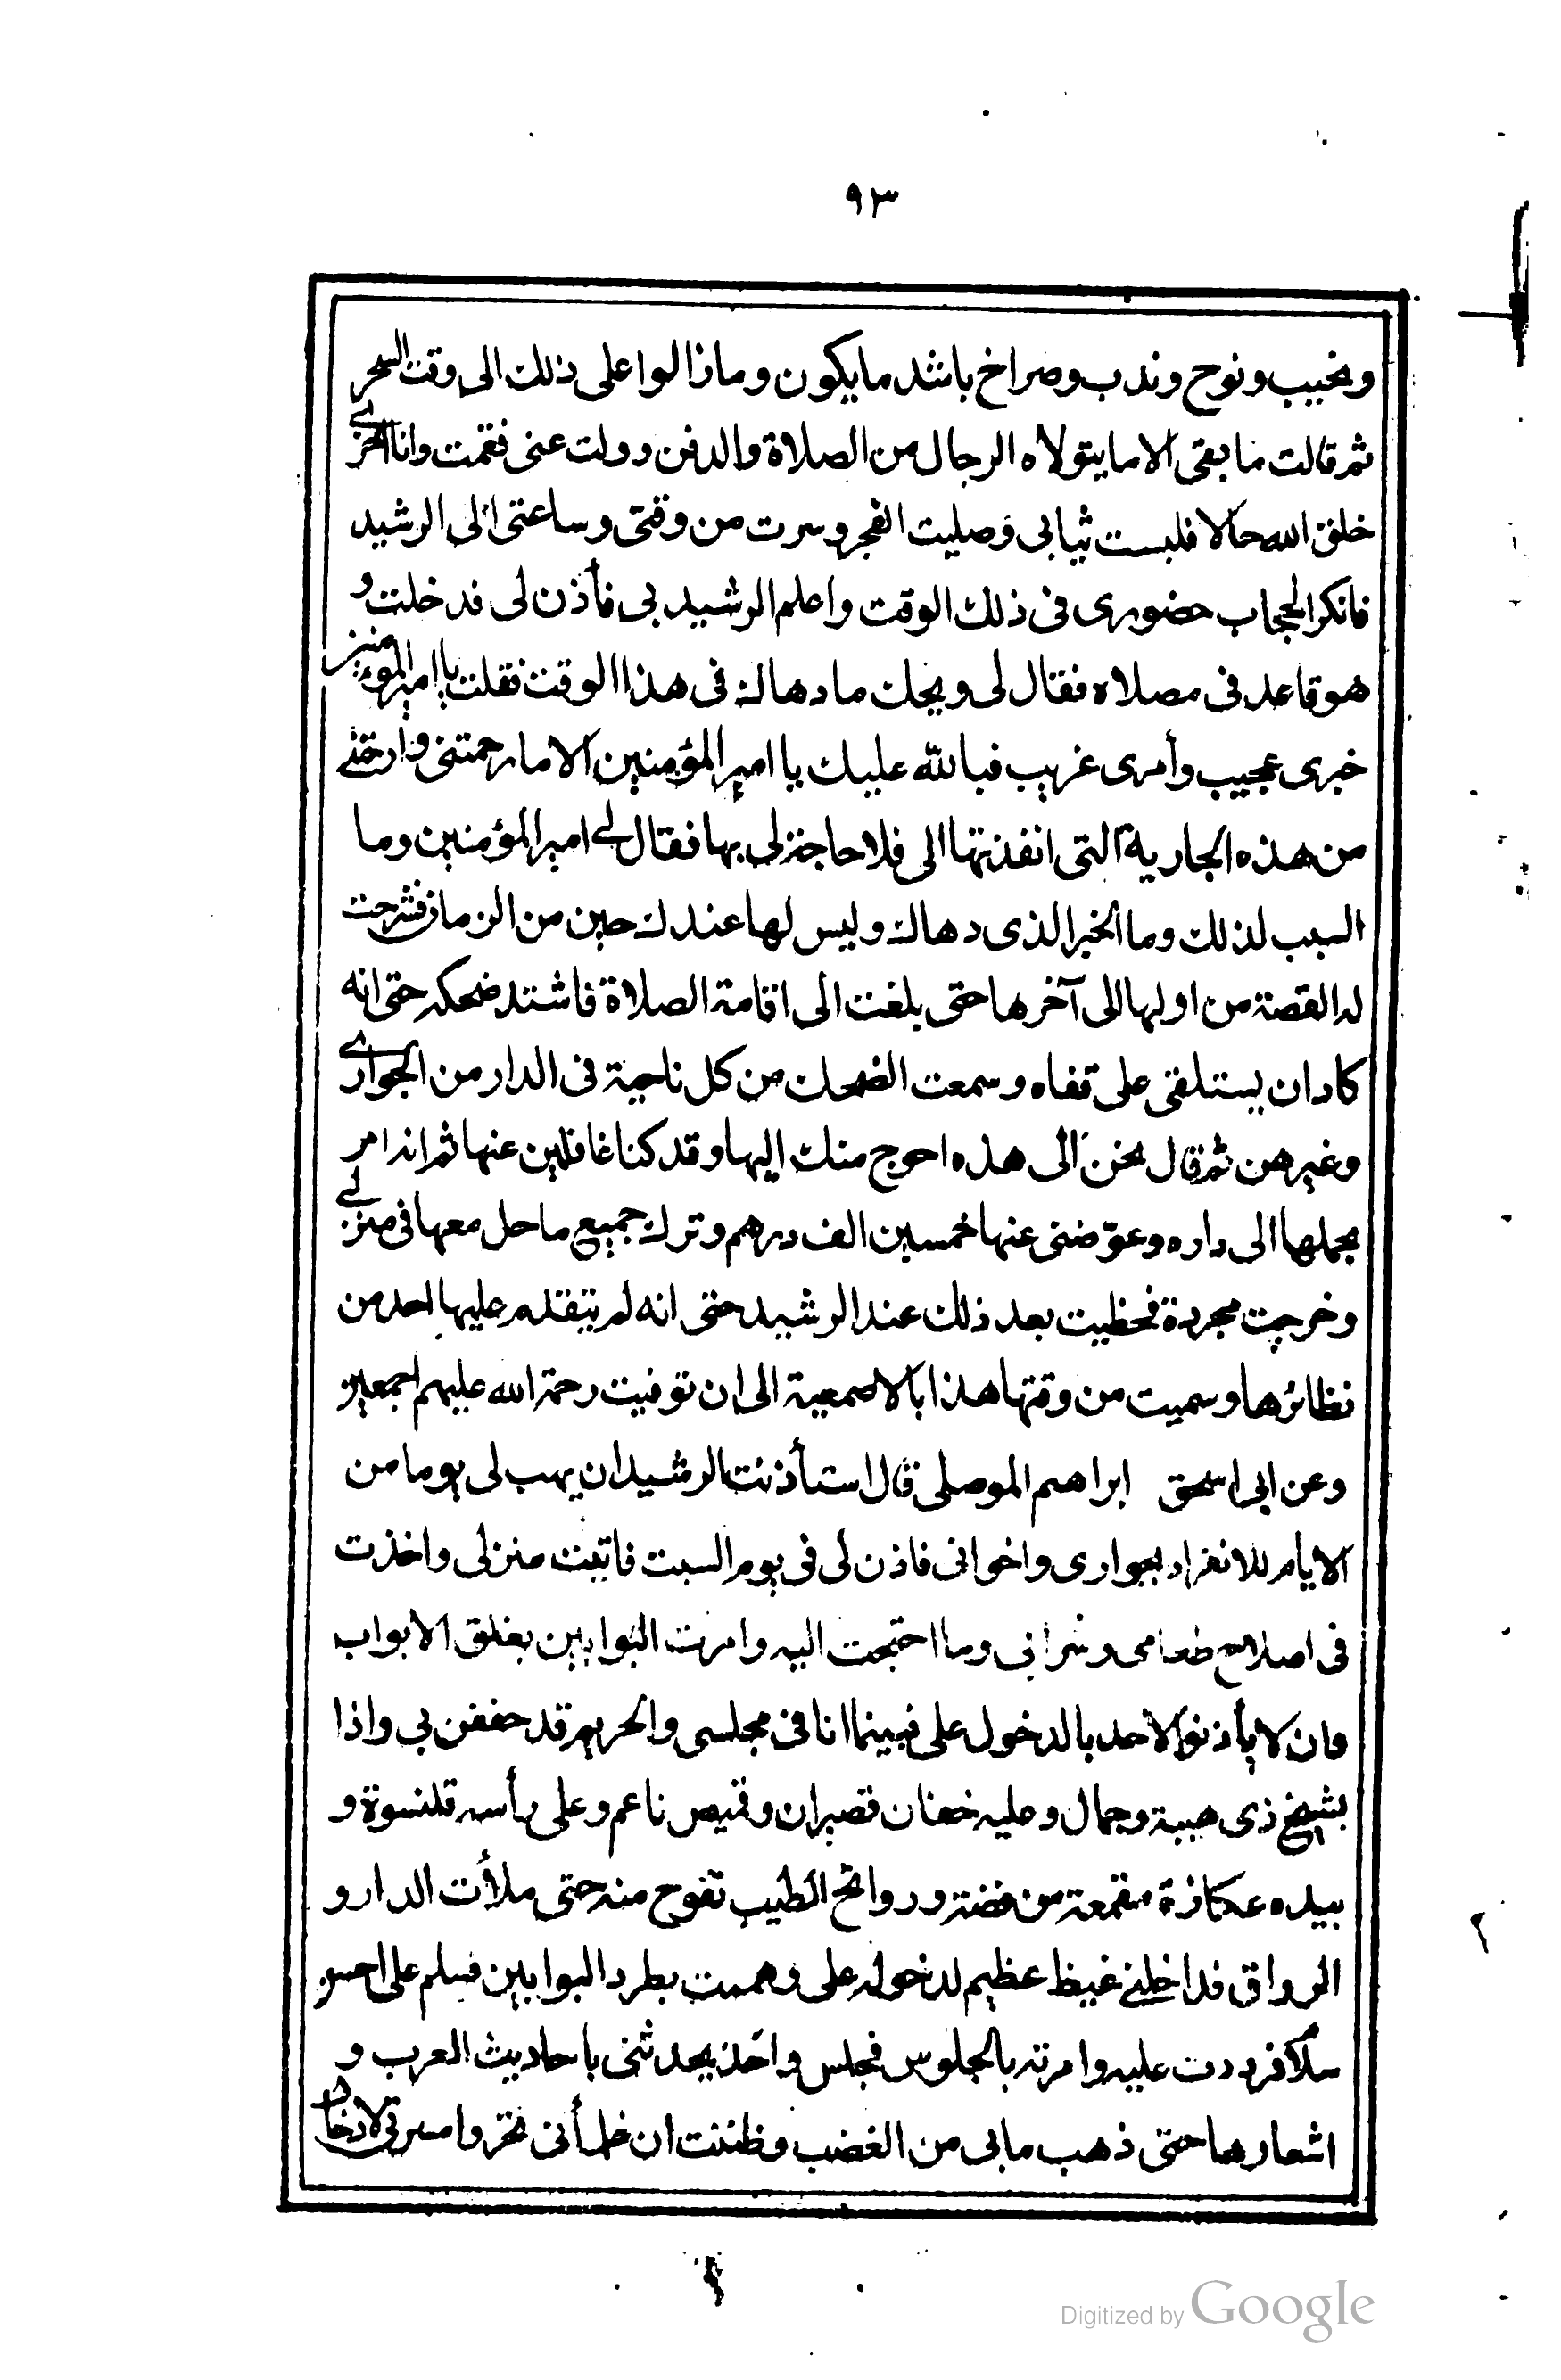 ٩٣
ونحيب ونوح وندب وصراخ باشد مايكون ومازالوا على ذلك الى وقت السحر
ثم قالت ما بقى الا ما يتولاه الرجال من الصلاة والدفن وولت عنى فقمت وانا اخزى
خلق الله حالا فلبست ثيابى وصليت الفجر وسرت من وقتى وساعتى الى الرشيد
فانكر الحجاب حضورى فى ذلك الوقت واعلم الرشيد بى فأذن لى فدخلت و
هو قاعد فى مصلاه فقال لى ويحك ما دهاك فى هذا الوقت فقلت يا امير المؤمنين
خبرى عجيب وأمرى غريب فبالله عليك يا امير المؤمنين الا ما رحمتنى وارحتنى
من هذه الجارية التى انفذتها الى فلا حاجة لى بها فقال لى امير المؤمنين وما
السبب لذلك وما الخبر الذى دهاك وليس لها عندك حين من الزمان فشرحت
له القصة من اولها الى آخرها حتى بلغت الى اقامة الصلاة فاشتد ضحكه حتى انه
كاد ان يستلقى على قفاه وسمعت الضحك من كل ناحية فى الدار من الجوارى
وغيرهن ثم قال نحن الى هذه احوج منك اليها وقد كنا غافلين عنها ثم انه امر
بحملها الى داره وعوّضنى عنها خمسين الف درهم وترك جميع ما حل معها فى منزلى
وخرجت مجردة فحظيت بعد ذلك عند الرشيد حتى انه لم يتقدم عليها احد من
نظائرها وسميت من وقتها هذا بالاصمعية الى ان توفيت رحمة الله عليهم اجمعين
وعن ابى اسحق ابراهيم الموصلى قال استأذنت الرشيد ان يهب لى يوما من
الايام للانفراد بجوارى واخوانى فاذن لى فى يوم السبت فاتيت منزلى واخذت
فى اصلاح طعامى وشرابى وما احتجت اليه وامرت البوابين بغلق الابواب
وان لا يأذنوا لاحد بالدخول على فبينما انا فى مجلسى والحريم قد حففن بى واذا
بشيخ ذى هيبة وجمال وعليه خفان قصيران وقميص ناعم وعلى رأسه قلنسوة و
بيده عكازة مقمعة من فضة وروائح الطيب تفوح منه حتى ملأت الدار و
الرواق فداخلنى غيظ عظيم لدخوله على وهممت بطرد البوابين فسلم على احسن
سلام فرددت عليه وامرته بالجلوس فجلس واخذ يحدثنى باحاديث العرب و
اشعارها حتى ذهب ما بى من الغضب وظننت ان غلمانى تحروا مسرتى لادخال
Digitized by Google